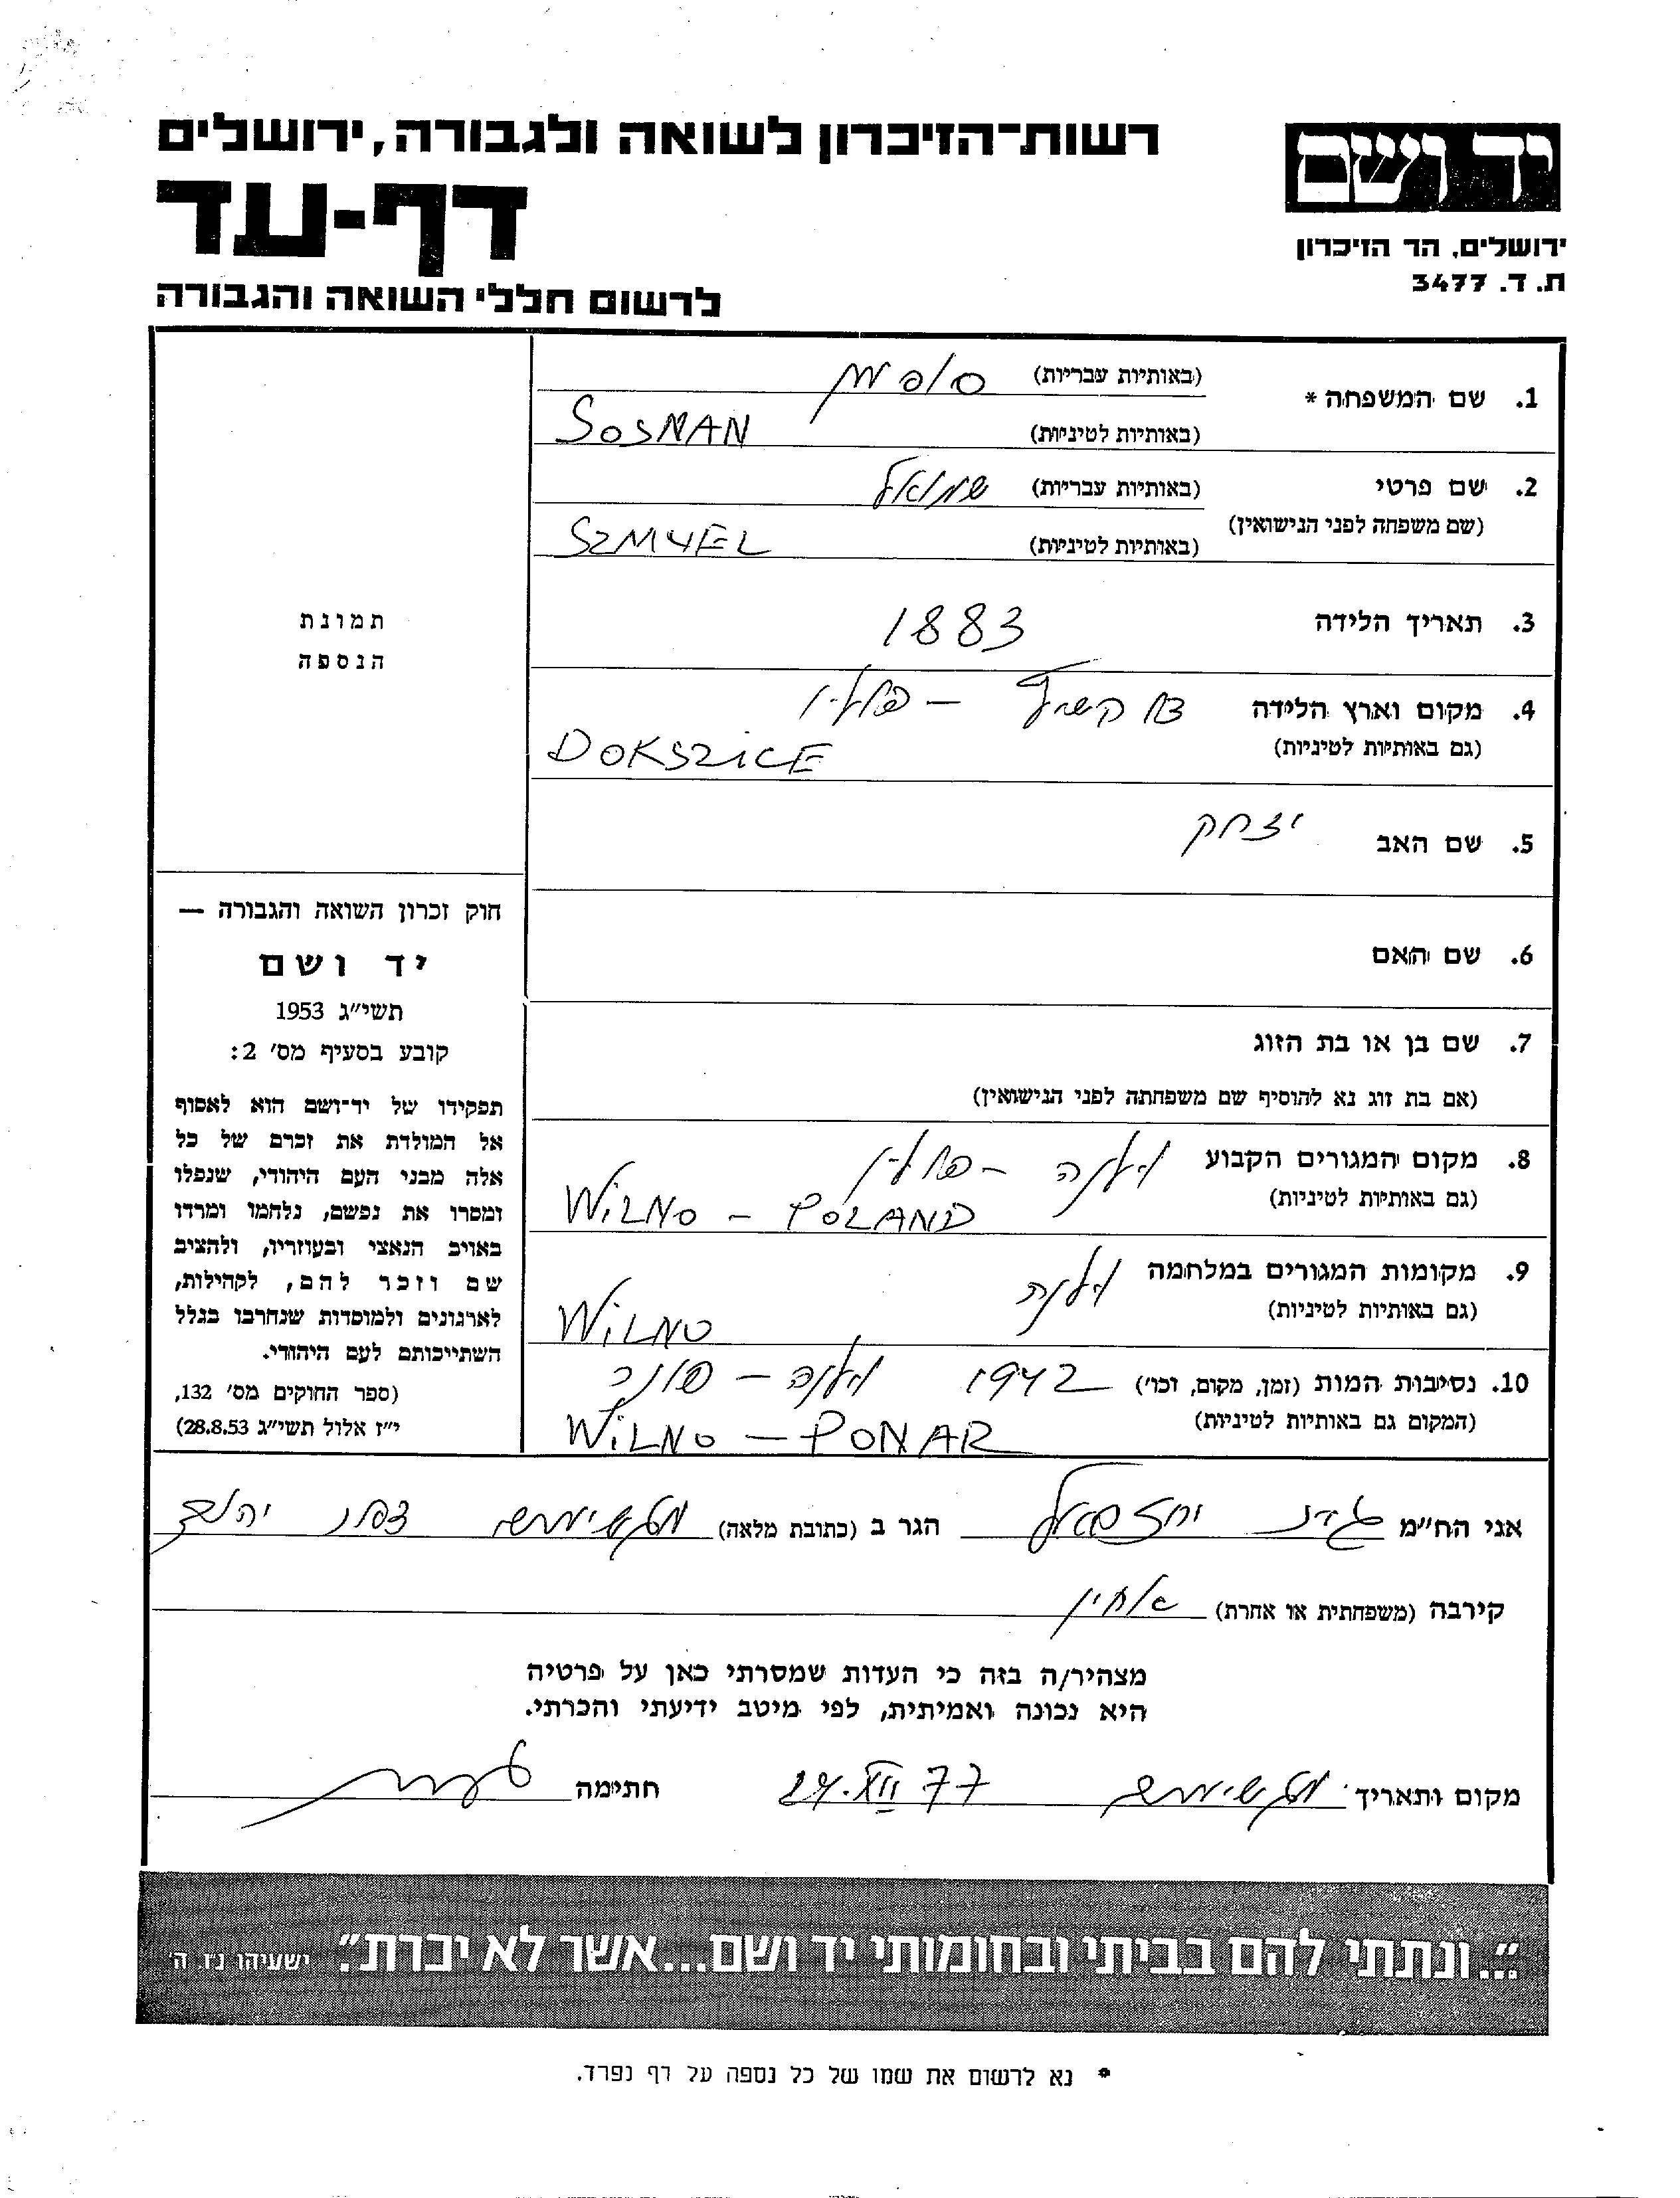 רשות-הזיכרון לשואה ולגבורה, ירושלים
דף-עד
לרשום חללי השואה והגבורה
יד ושם
ירושלים, הר הזיכרון
ת. ד. 3477
1. שם המשפחה *
(באותיות עבריות) סוסמן
(באותיות לטיניות) SOSNAN
2. שם פרטי (באותיות עבריות) שמואל
(שם משפחה לפני הנישואין)
(באותיות לטיניות) SZMUEL
3. תאריך הלידה 1883
4. מקום וארץ הלידה – פולין
(גם באותיות לטיניות) DOKSZICE
5. שם האב יצחק
6. שם האם
7. שם בן או בת הזוג
(אם בת זוג נא להוסיף שם משפחתה לפני הנישואין)
8. מקום המגורים הקבוע וילנה – פולין
(גם באותיות לטיניות) WILNO – POLAND
9. מקומות המגורים במלחמה וילנה
(גם באותיות לטיניות) WILNO
10. נסיבות המות (זמן, מקום, וכו') 1942 וילנה – פונר
(המקום גם באותיות לטיניות) WILNO – PONAR
תמונת
הנספה
חוק זכרון השואה והגבורה —
יד ושם
תשי״ג 1953
קובע בסעיף מס' 2:
תפקידו של יד-ושם הוא לאסוף
אל המולדת את זכרם של כל
אלה מבני העם היהודי, שנפלו
ומסרו את נפשם, נלחמו ומרדו
באויב הנאצי ובעוזריו, ולהציב
שם וזכר להם, לקהילות,
לארגונים ולמוסדות שנחרבו בגלל
השתייכותם לעם היהודי.
(ספר החוקים מס' 132,
י״ז אלול תשי״ג 28.8.53)
אני הח״מ הגר ב (כתובת מלאה)
קירבה (משפחתית או אחרת) אחיין
מצהיר/ה בזה כי העדות שמסרתי כאן על פרטיה
היא נכונה ואמיתית, לפי מיטב ידיעתי והכרתי.
מקום ותאריך 29.XII 77 חתימה
״...ונתתי להם בביתי ובחומותי יד ושם...אשר לא יכרת״. ישעיהו נ״ו, ה'
* נא לרשום את שמו של כל נספה על דף נפרד.